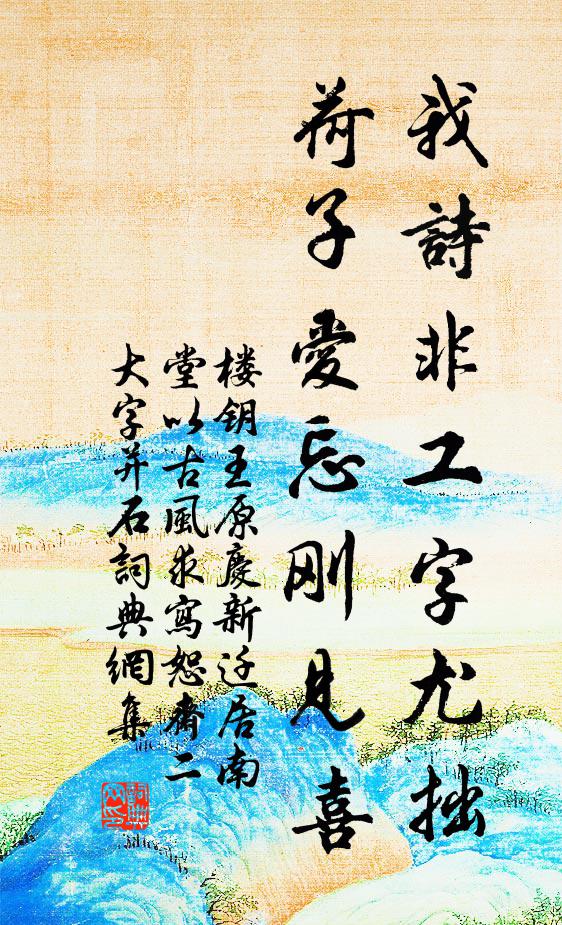 我詩非工字尤拙
荷子愛忘剛見喜
楼钥王原慶新迁居南
堂以古風求寫恕齋二
大字并石詞典網集